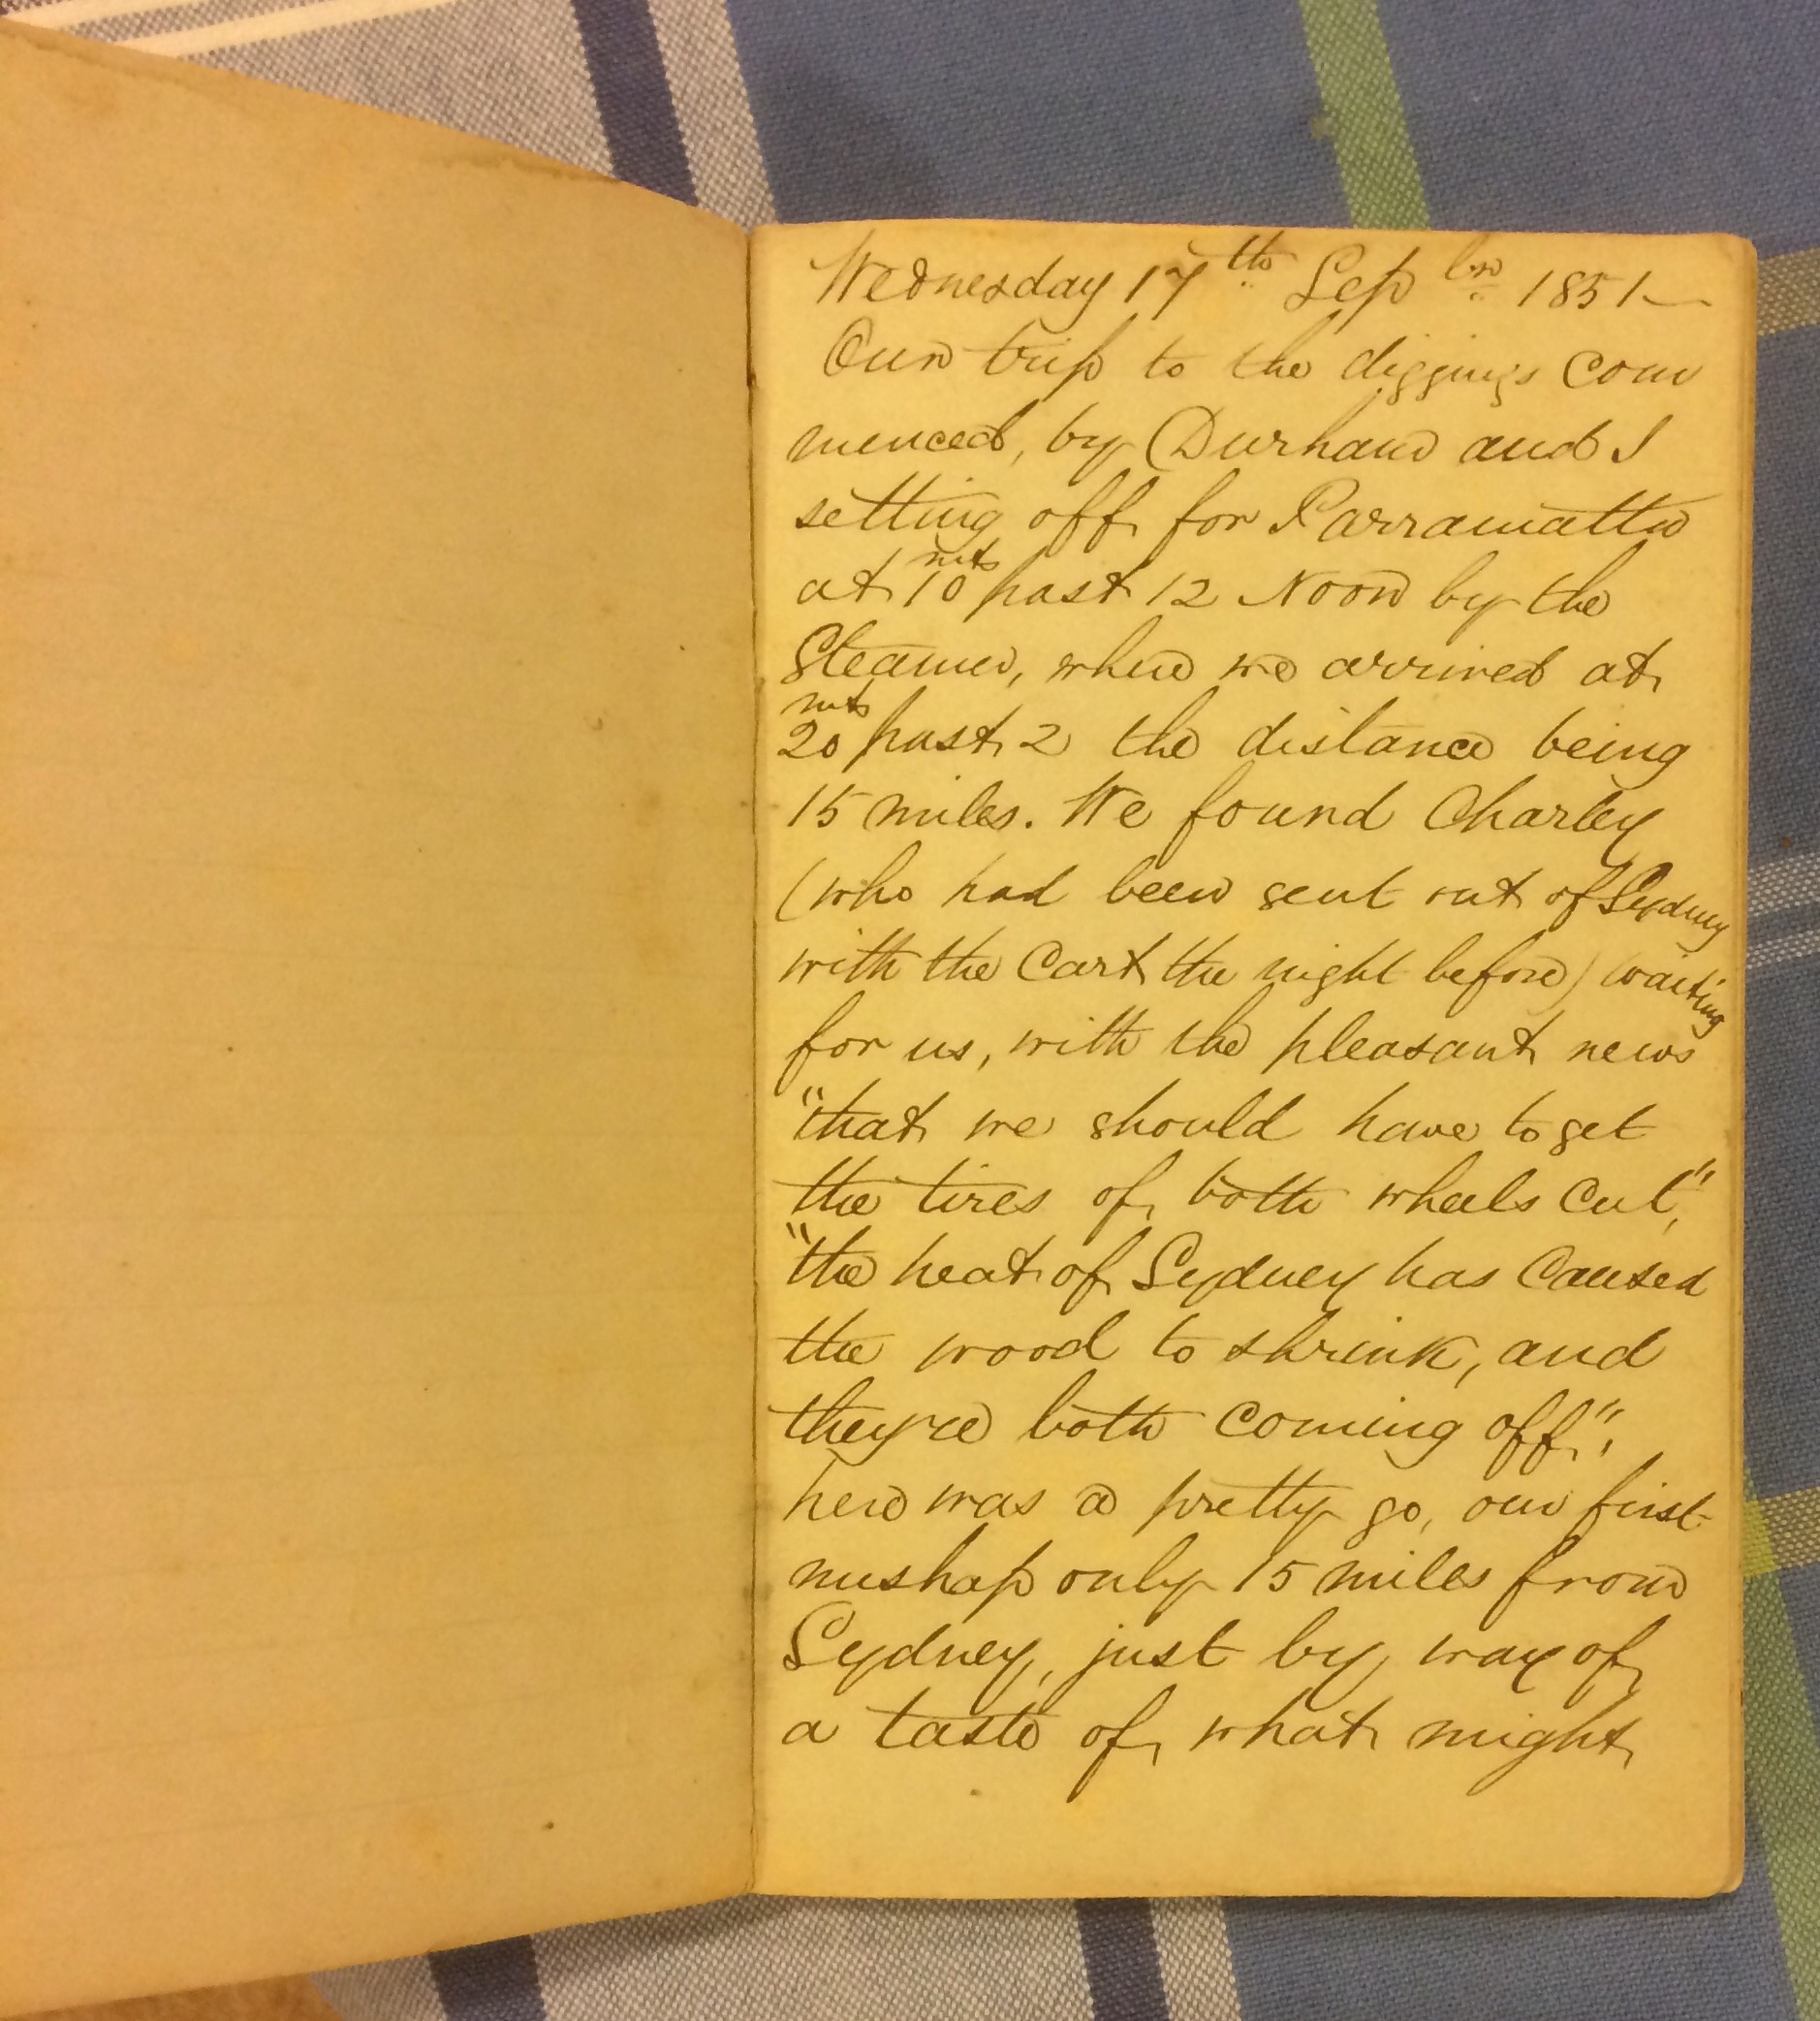 Wednesday 17th Sepbr 1851
Our trip to the diggings com
menced, by Durham and I
setting off for Parramatta
at 10 mts past 12 Noon by the
Steamer, where we arrived at
20 mts past 2 the distance being
15 miles. We found Charley
(who had been sent out of Sydney
with the Cart the night before) waiting
for us, with the pleasant news
"that we should have to get
the tires of both wheels cut,"
"the heat of Sydney has caused
the wood to shrink, and
they're both coming off";
here was a pretty go, our first
mishap only 15 miles from
Sydney, just by way of
a taste of what might